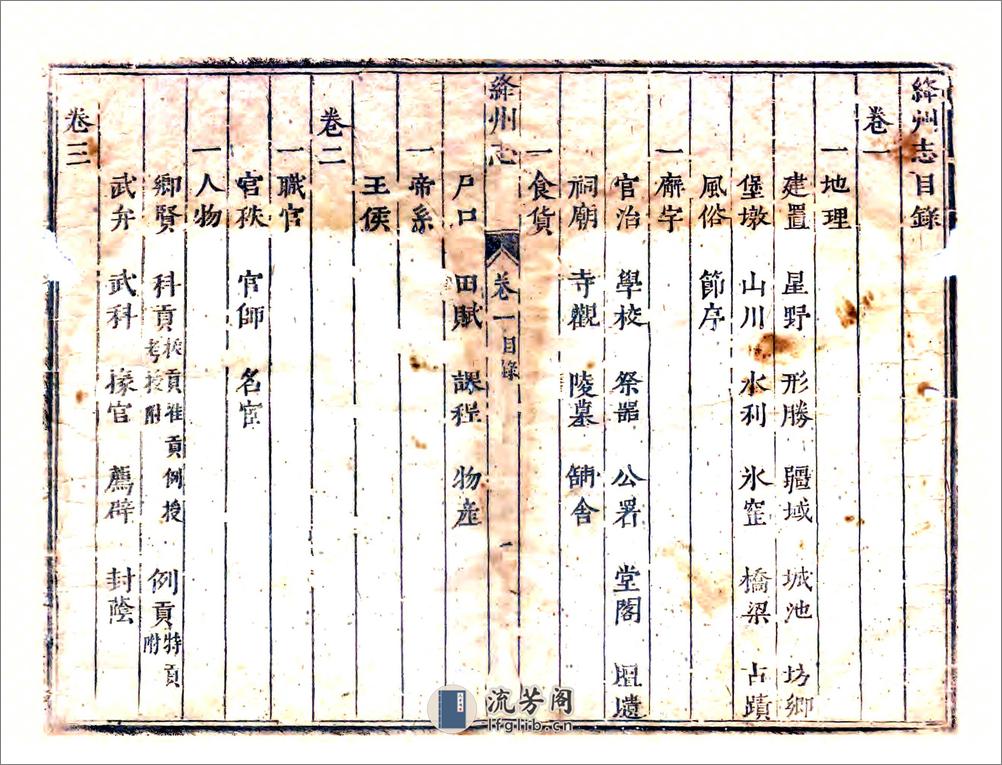 絳州志目錄
卷一
一地理
建置 星野 形勝 疆域 城池 坊鄉
堡墩 山川 水利 氷窖 橋梁 古蹟
風俗 節序
一廨宇
官治 學校 祭器 公署 堂閣 壇壝
祠廟 寺觀 陵墓 舖舍
一食貨
絳州志 卷一目錄 一
戶口 田賦 課程 物產
一帝系
王侯
卷二
一職官
官秩 官師 名宦
一人物
鄉賢 科貢 拔貢准貢例授考授附 例貢 特貢附
武弁 武科 掾官 薦辟 封蔭
卷三
流芳阁
lfglib.cn